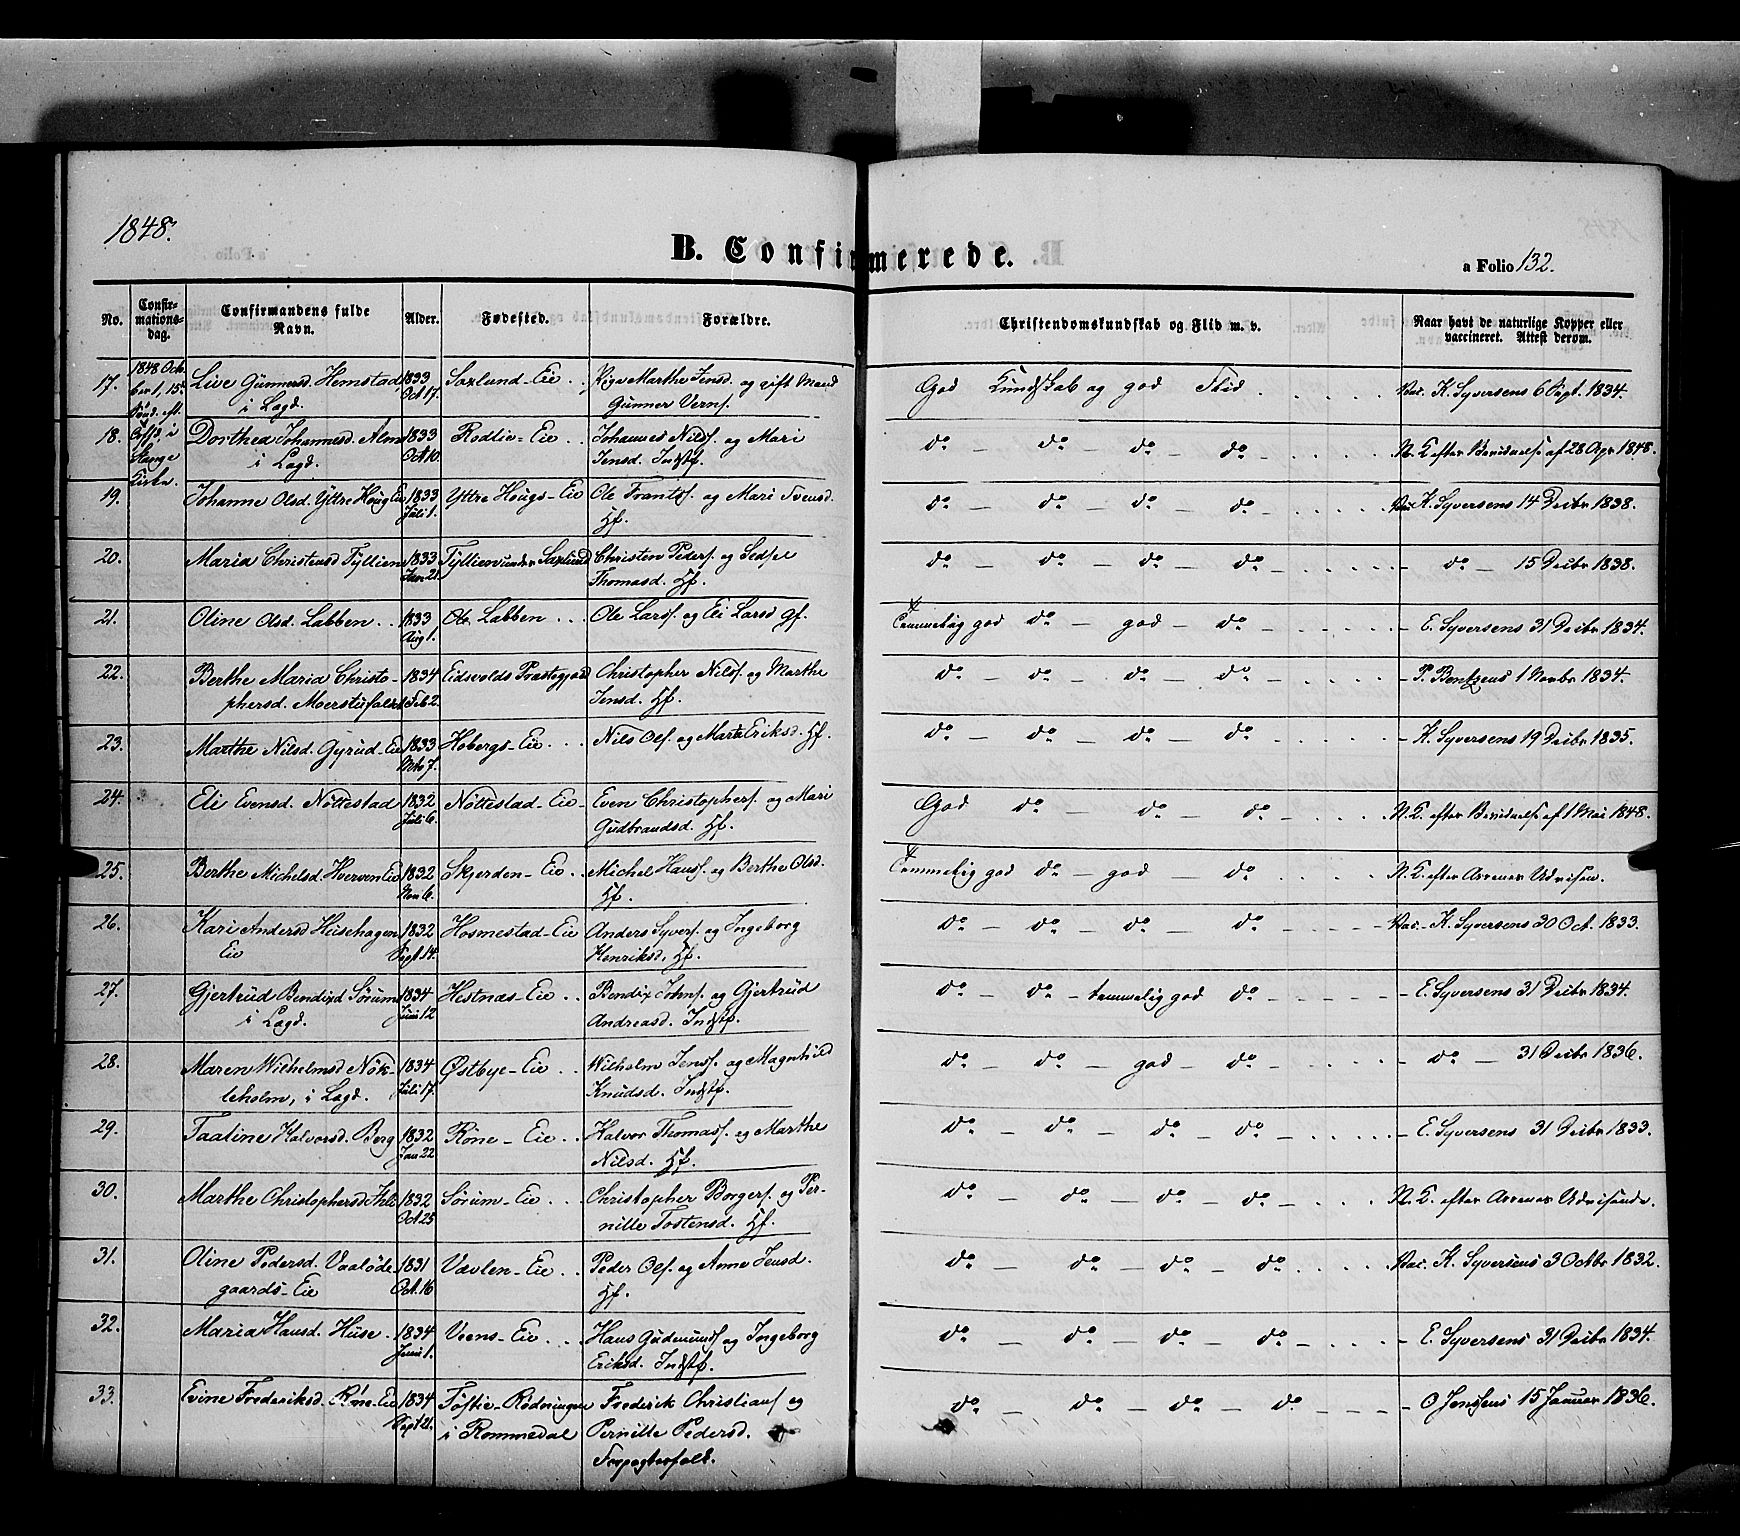 1848.
B. Confirmerede.
a Folio 132.
No. Confir-mations-dag. Confirmandens fulde Navn. Alder. Fødested. Forældre. Christendomskundskab og Flid m. v. Naar havt de naturlige Kopper eller vaccineret. Attest derom.
17. 1848 Octber 1, 15 Live Gunnersd. Hemstad 1833 Saxlund-Eie . . Pige Marthe Jensd. og gift Mand God Kundskab og god Flid . . . . . . Vac. K. Syversens 6 Sept. 1834.
i Lagd. Oct 17. Gunner
18. i Stange Kirke. Dorthea Johannesd. Alm 1833 Rodlie-Eie . . Johannes Nilss. og Mari do — do — do — do - . . . . . N. K. efter Bevidnelse af 28 Apr 1848.
i Lagd. Oct 10. Jensd. Indstf.
19. Johanne Olsd. Yttre Houg Eie 1833 Yttre Hougs-Eie Ole Frants. og Mari Svensd. do — do — do — do - . . . . . Vac. K. Syversens 14 Decbr 1838.
Juli 1. Hf.
20. Maria Christensd Fyllien 1833 Fyllien under Saxlund Christen Peders. og Sedsel do — do — do — do - . . . . - do — 15 Decbr 1838.
Jan 21. Thomasd. Hf.
21. Oline Olsd. Labben . . 1833 Labben . . . Ole Larss. og Eli Larsd Gf. Temmelig god do — god — do - . . . . . - E. Syversens 31 Decbr 1834.
Aug 1.
22. Berthe Maria Christo- 1834 Eidsvolds Præstegjæld Christopher Nilss. og Marthe do — do — do — do - . . . . . - P. Bentzens 1 Novbr 1834.
phersd. Moerstufald Feb 2. Jensd. Hf.
23. Marthe Nilsd. Gyrud-Eie 1833 Hobergs-Eie . . . Nils Ols. og Marte Eriksd. Hf. do — do — do — do - . . . . - K. Syversens 19 Decbr 1835.
24. Eli Evensd. Nøttestad 1832 Nøttestad-Eie Even Christophers. og Mari God do — do — do - . . . . - N. K. efter Bevidnelse af 1 Mai 1848.
Juli 6. Gudbrandsd. Hf.
25. Berthe Michelsd. Hverven Eie 1832 Skjerden-Eie . . Michel Hanss. og Berthe Olsd. Temmelig god do — god — do . . . . N. K. efter Arrenes Udvisen.
Nov 6. Hf.
26. Kari Andersd Husehagen 1832 Hosmestad-Eie Anders Syvers. og Ingeborg do — do — do — do - . . . - Vac. K. Syversens 30 Oct. 1833.
Eie Sept 14. Henriksd. Hf.
27. Gjertrud Bendixd Sørum 1834 Hestnæs-Eie . . Bendix Johns. og Gjertrud do — do — temmelig god do - . . . . - E. Syversens 31 Decbr 1834.
i Lagd. Juni 12 Andreasd. Indstf.
28. Maren Wilhelmsd Nøk- 1834 Østbye-Eie . . Wilholm Jenss. og Magnhild do — do god — do - . . . . - do — 31 Decbr 1836.
leholm, i Lagd. Juli 17. Knudsd. Indstf.
29. Taaline Halvorsd. Berg 1832 Røne-Eie . . . Halvor Thomass. og Marthe do — do — do — do - . . . . - E. Syversens 31 Decbr 1833.
Jan 22 Nilsd. Hf.
30. Marthe Christophersd Ihle 1832 Sørum-Eie . . . Christopher Borgers. og Per- do — do — do — do - . . . N. K. efter Arrenes Udvisende.
Oct 25 nille Tostensd. Hf.
31. Oline Pedersd. Vaaløde- 1831 Vævlen-Eie . . Peder Ols. og Anne Jensd. do — do — do — do . . . . . Vac. K. Syversens 3 Octbr 1832.
gaards-Eie Oct. 16 Hf.
32. Maria Hansd. Huse . 1834 Veens-Eie . . . Hans Gudmunds og Ingeborg do — do — do — do - . . . . - E. Syversens 31 Decbr 1834.
Juni 1. Eriksd. Indstf.
33. Evine Frederiksd. Røne-Eie 1834 Tøftie-Rødningen Frederik Christians og do — do — do — do - - - - - O Jensens 15 Januar 1836.
Sept 2. i Rommedal Pernille Pedersd.
Forpagterfolk.